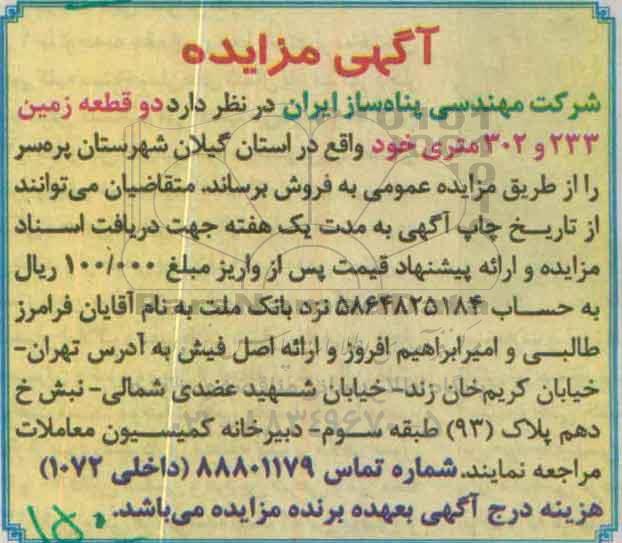 آگهی مزایده
شرکت مهندسی پناه‌ساز ایران در نظر دارد دو قطعه زمین
۲۳۳ و ۳۰۲ متری خود واقع در استان گیلان شهرستان پره‌سر
را از طریق مزایده عمومی به فروش برساند. متقاضیان می‌توانند
از تاریخ چاپ آگهی به مدت یک هفته جهت دریافت اسناد
مزایده و ارائه پیشنهاد قیمت پس از واریز مبلغ ۱۰۰/۰۰۰ ریال
به حساب ۵۸۶۴۸۲۵۱۸۴ نزد بانک ملت به نام آقایان فرامرز
طالبی و امیرابراهیم افروز و ارائه اصل فیش به آدرس تهران-
خیابان کریم‌خان زند- خیابان شهید عضدی شمالی- نبش خ
دهم پلاک (۹۳) طبقه سوم- دبیرخانه کمیسیون معاملات
مراجعه نمایند. شماره تماس ۸۸۸۰۱۱۷۹ (داخلی ۱۰۷۲)
هزینه درج آگهی بعهده برنده مزایده می‌باشد.